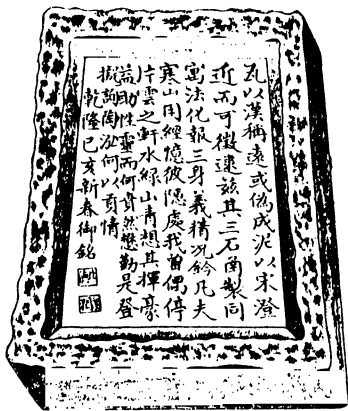 瓦以漢稱遠或偽成泥以宋澄
近而可徵逮茲其三石製同
寓法化報三身義精况凡夫
寒山用經憶彼隱處我曾偶停
片雲之軒水綠山青想其揮豪
益助性靈而何賁然懋勤是登
擬詢陶泓何以貢情
乾隆己亥新春御銘